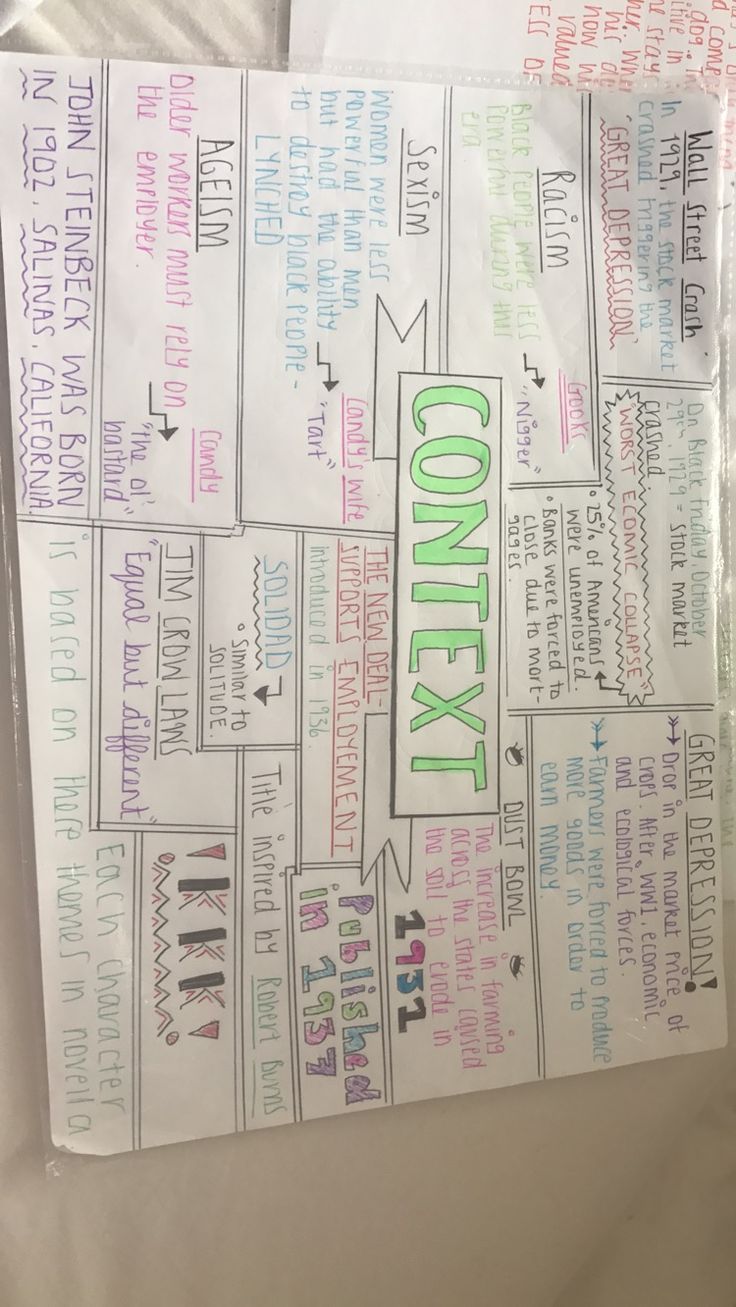 Wall Street Crash
In 1929, the stock market
crashed triggering the
'GREAT DEPRESSION'
On Black Friday, October
29th 1929 = stock market
crashed.
"WORST ECOMIC COLLAPSE"
• 25% of Americans
were unemployed.
• Banks were forced to
close due to mort-
gages.
GREAT DEPRESSION!
Drop in the market price of
crops. After WW1, economic
and ecological forces.
Farmers were forced to produce
more goods in order to
earn money.
Racism
Black people were less
powerful during this
era
Crooks
"Nigger"
CONTEXT
DUST BOWL
The increase in farming
across the states caused
the soil to erode in
1931
Sexism
Women were less
powerful than men
but had the ability
to destroy black people -
LYNCHED
Candy's wife
"Tart"
THE NEW DEAL-
SUPPORTS EMPLOYEMENT
introduced in 1936.
Published
in 1937
SOLIDAD
• Similar to
SOLITUDE.
Title inspired by Robert Burns
AGEISM
Older workers must rely on
the employer.
Candy
"the ol'
bastard"
JIM CROW LAWS
"Equal but different"
KKK
JOHN STEINBECK WAS BORN
IN 1902, SALINAS, CALIFORNIA.
Each character
is based on there themes in novella